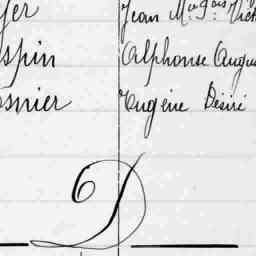 yer Jean M. Gois Vict
spin Alphonse Augu
snier Eugène Désiré
D